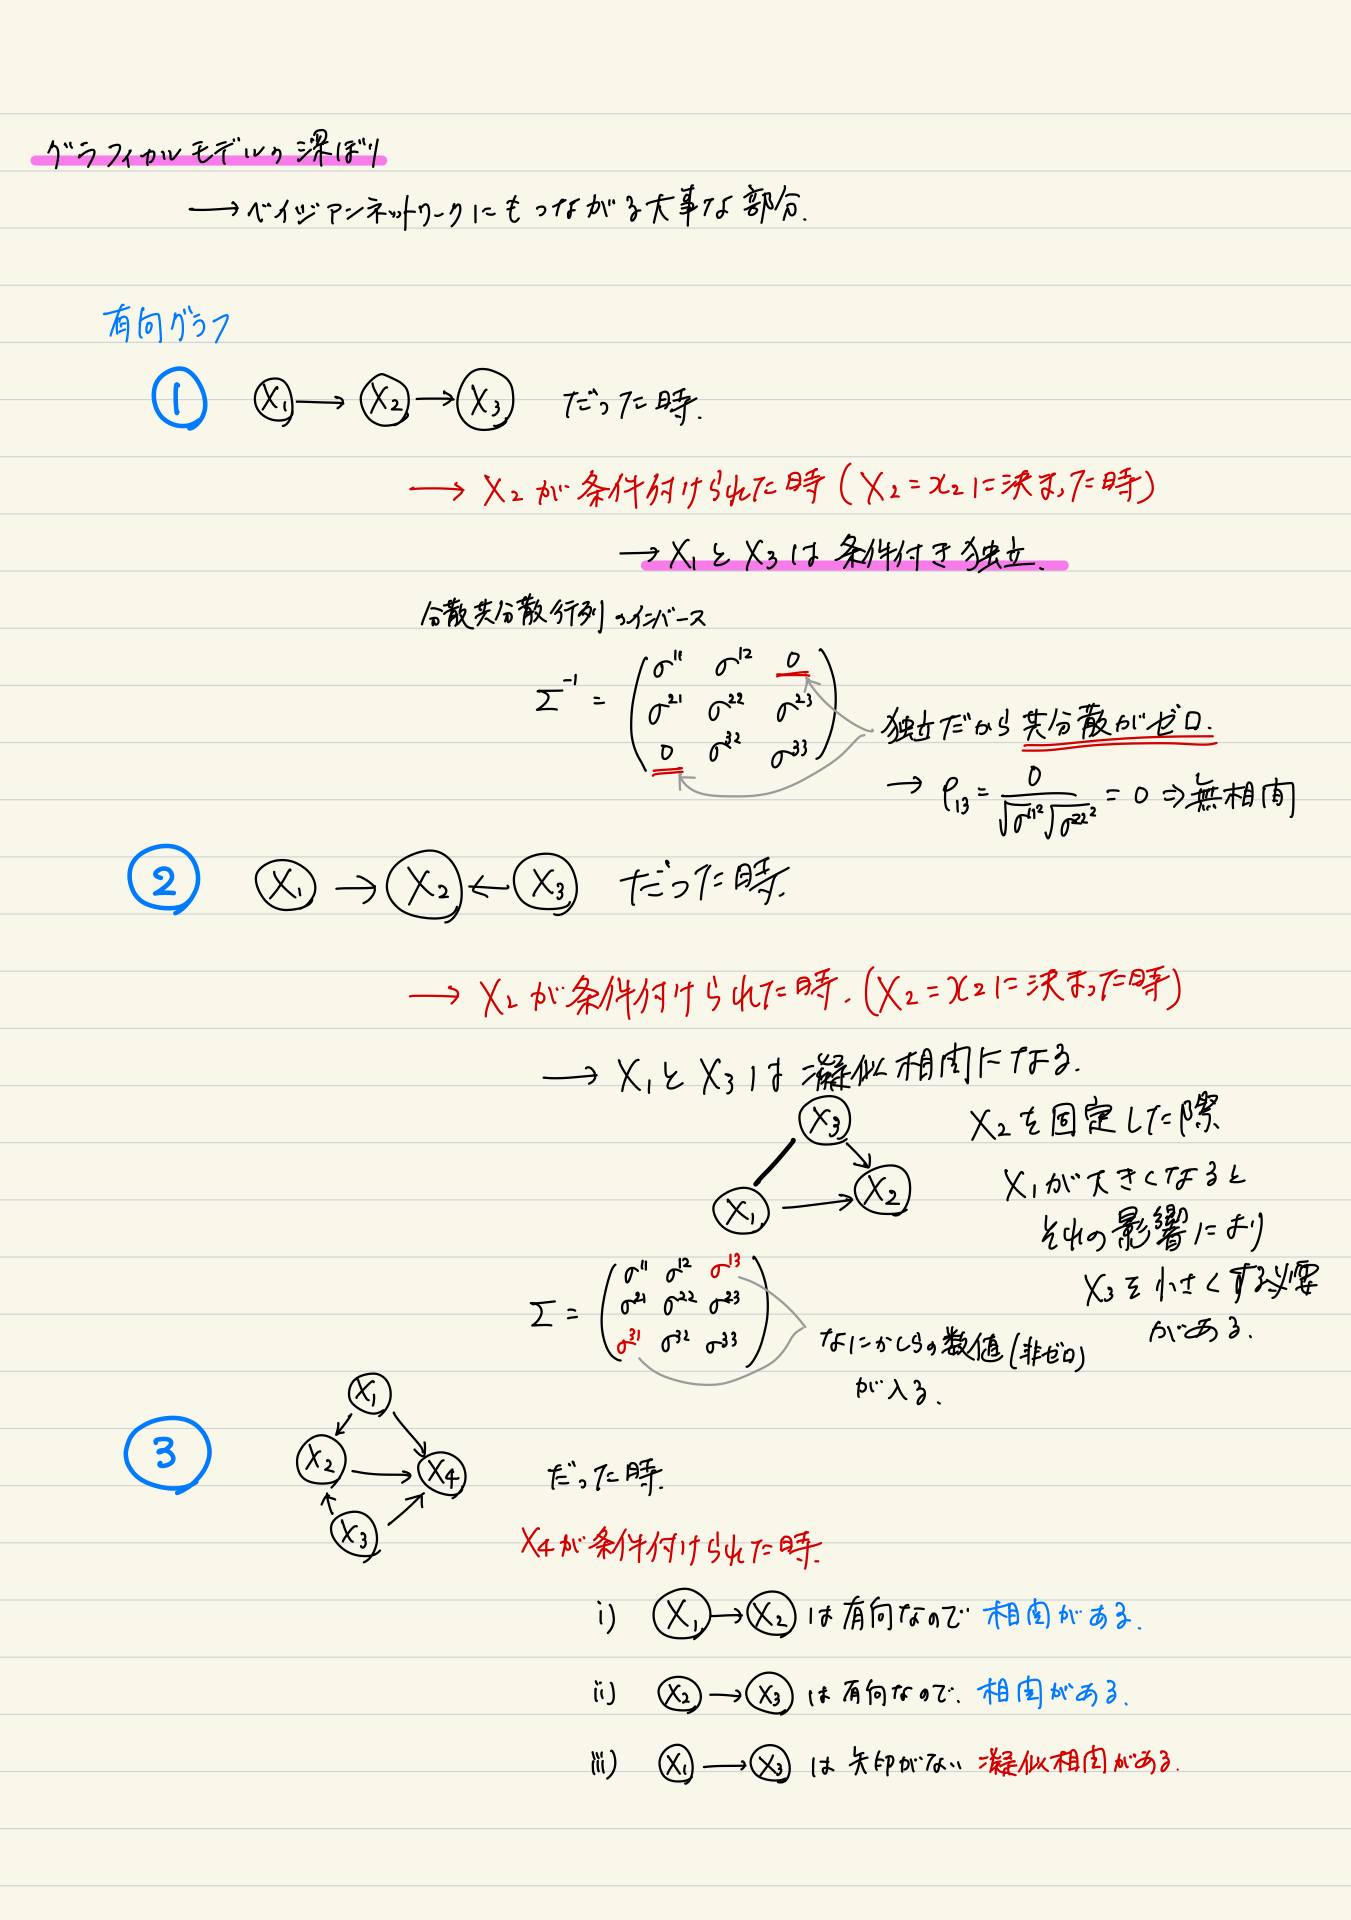 グラフィカルモデルの深ぼり
→ベイジアンネットワークにもつながる大事な部分.
有向グラフ
① X₁→X₂→X₃ だった時.
→ X₂が条件付けられた時(X₂=x₂に決まった時)
→X₁とX₃は条件付き独立.
分散共分散行列のインバース
Σ⁻¹ = ( σ¹¹ σ¹² 0
σ²¹ σ²² σ²³
0 σ³² σ³³ )
独立だから共分散がゼロ.
→ ρ₁₃ = 0 / √σ¹¹² √σ²²² = 0 ⇒無相関
② X₁ → X₂ ← X₃ だった時.
→ X₂が条件付けられた時.(X₂=x₂に決まった時)
→ X₁とX₃は凝似相関になる.
X₃
X₁ → X₂
X₂を固定した際
X₁が大きくなると
それの影響により
X₃を小さくする必要
がある.
Σ = ( σ¹¹ σ¹² σ¹³
σ²¹ σ²² σ²³
σ³¹ σ³² σ³³ )
なにかしらの数値(非ゼロ)
が入る.
③ X₁
X₂ → X₄
X₃
だった時.
X₄が条件付けられた時.
i) X₁→X₂ は有向なので 相関がある.
ii) X₂→X₃ は有向なので. 相関がある.
iii) X₁→X₃ は矢印がない 凝似相関がある.